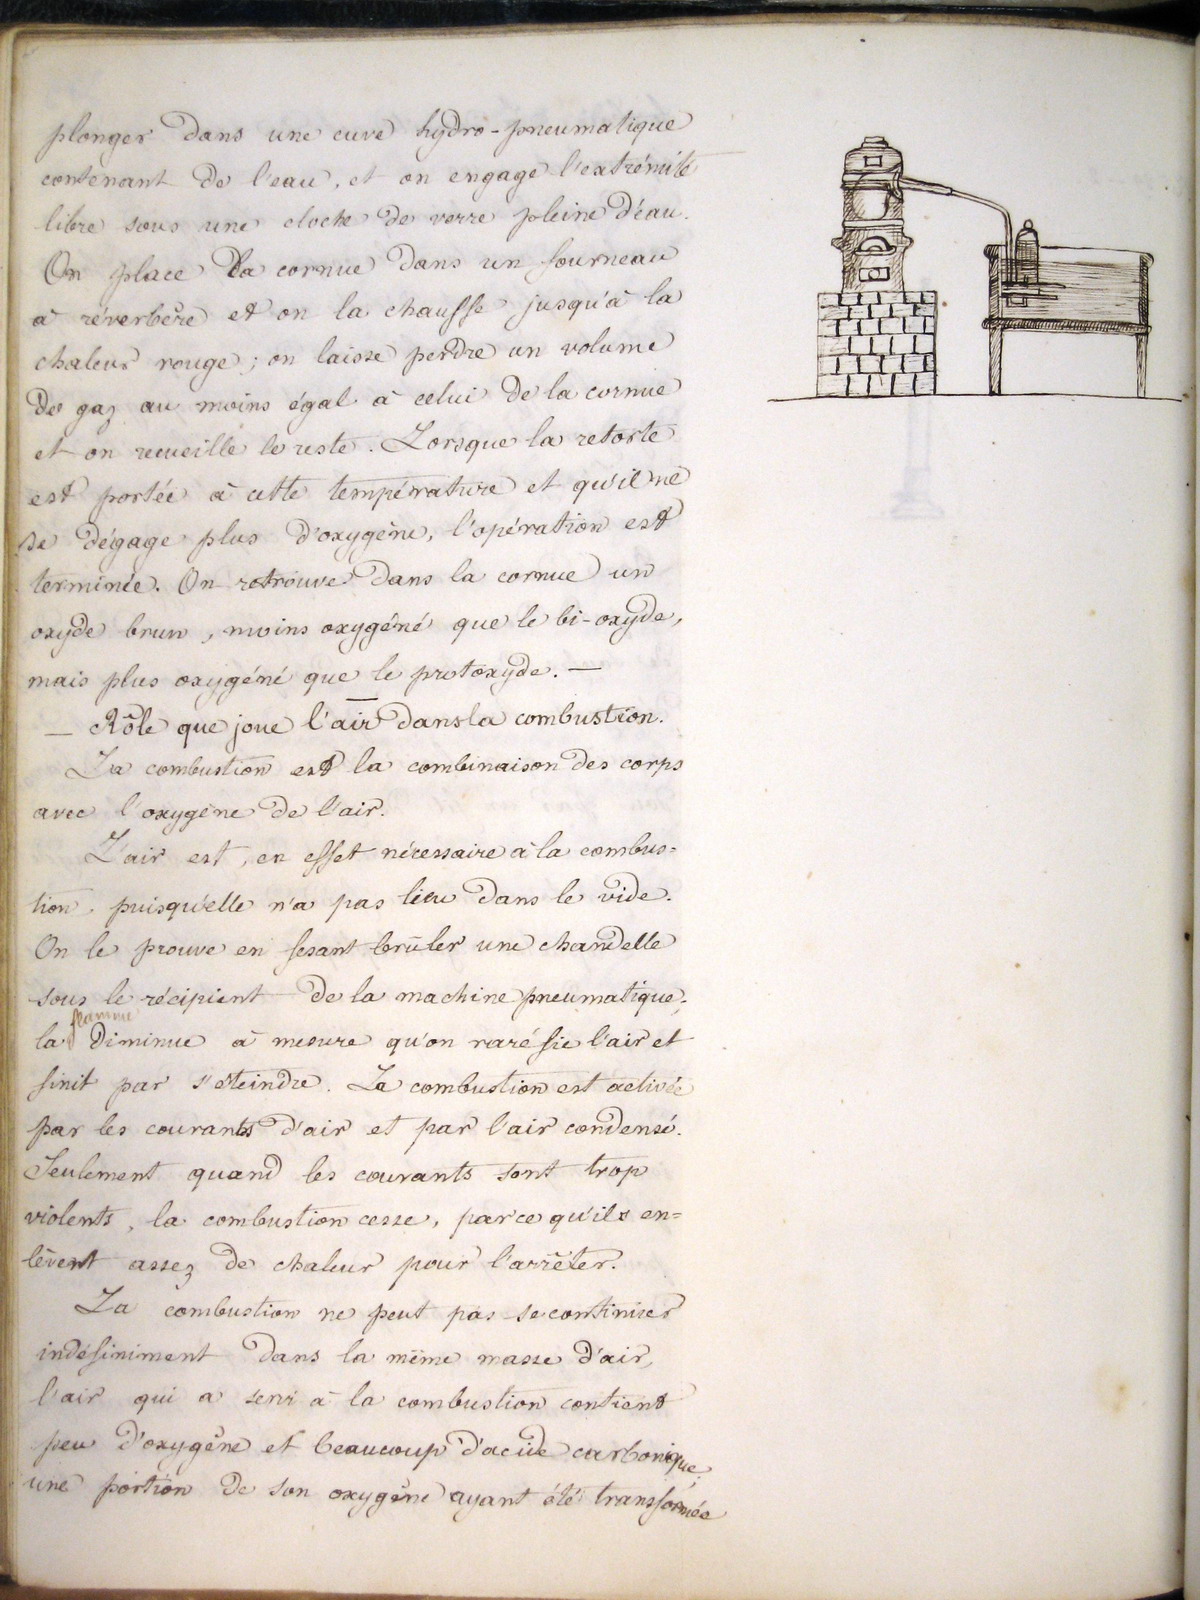 plonger dans une cuve hydro-pneumatique
contenant de l'eau, et on engage l'extrémité
libre sous une cloche de verre pleine d'eau.
On place la cornue dans un fourneau
à réverbère et on la chauffe jusqu'à la
chaleur rouge ; on laisse perdre un volume
de gaz au moins égal à celui de la cornue
et on recueille le reste. Lorsque la retorte
est portée à cette température et qu'il ne
se dégage plus d'oxygène, l'opération est
terminée. On retrouve dans la cornue un
oxyde brun, moins oxygéné que le bi-oxyde,
mais plus oxygéné que le protoxyde. —
— Rôle que joue l'air dans la combustion.
La combustion est la combinaison des corps
avec l'oxygène de l'air.
L'air est, en effet nécessaire à la combus=
tion, puisqu'elle n'a pas lieu dans le vide.
On le prouve en fesant brûler une chandelle
sous le récipient de la machine pneumatique;
la flamme diminue à mesure qu'on raréfie l'air et
finit par s'éteindre. La combustion est activée
par les courants d'air et par l'air condensé.
Seulement quand les courants sont trop
violents, la combustion cesse, parce qu'ils en=
lèvent assez de chaleur pour l'arrêter.
La combustion ne peut pas se continuer
indéfiniment dans la même masse d'air,
l'air qui a servi à la combustion contient
peu d'oxygène et beaucoup d'acide carbonique,
une portion de son oxygène ayant été transformée